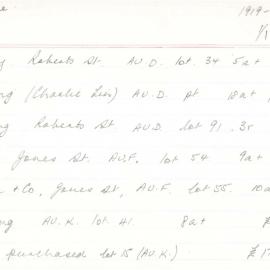 1919-
1/1
Roberts St. AV.D. lot. 34 5a+
(Charlie Lim) AV.D pt 18a+
Roberts St. AV.D. lot 91. 3r
Jones St. AV.F. lot 54 9a+
+ Co. Jones St, AV.F. Lot 55. 10a
AV.K. lot 41. 8a+ £
purchased lot 15 (AV.K.) £1